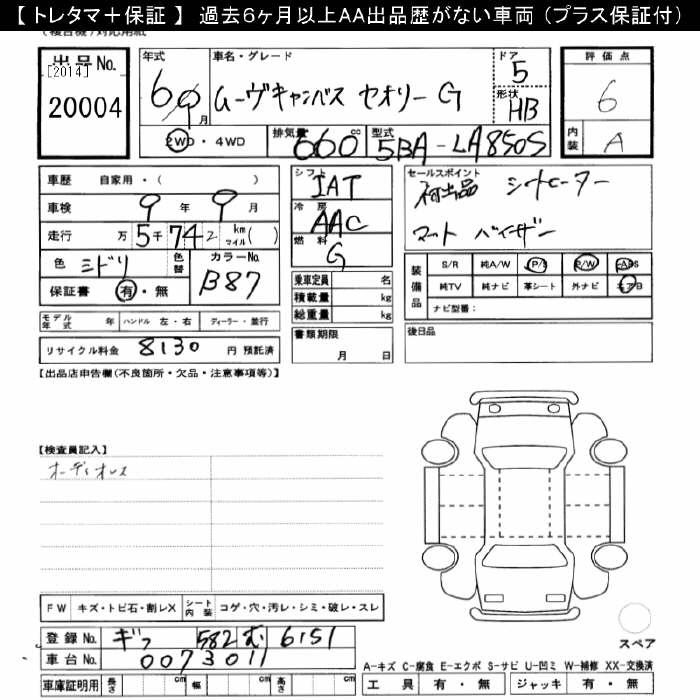 【 トレタマ＋保証 】 過去６ヶ月以上ＡＡ出品歴がない車両（プラス保証付）
出品No.
[2014]
20004
年式
6年9月
車名・グレード
ムーヴキャンバス セオリー G
ドア 5
形状 HB
評価点
6
内装 A
2WD・4WD
排気量 660 cc
型式 5BA-LA850S
車歴 自家用・( )
車検 9 年 9 月
走行 万 5 千 74 2 km マイル( )
色 ミドリ 色替
カラーNo. B87
保証書 有・無
シフト IAT
冷房 AAC
燃料 G
乗車定員 名
積載量 kg
総重量 kg
書類期限
月 日
セールスポイント
初出品 シートヒーター
マット バイザー
装備品
S/R 純A/W P/S P/W ABS
純TV 純ナビ 革シート 外ナビ エアB
ナビ型番：
後日品
モデル年式 年 ハンドル 左・右 ディーラー・並行
リサイクル料金 8130 円 預託済
【出品店申告欄(不良箇所・欠品・注意事項等)】
【検査員記入】
オーディオレス
FW キズ・トビ石・割レX シート内装 コゲ・穴・汚レ・シミ・破レ・スレ
登録No. ギフ 582 む 6151
車台No. 0073011
車庫証明用 長さ cm 幅 cm 高さ cm
スペア
A-キズ C-腐食 E-エクボ S-サビ U-凹ミ W-補修 XX-交換済
工具 有・無 ジャッキ 有・無